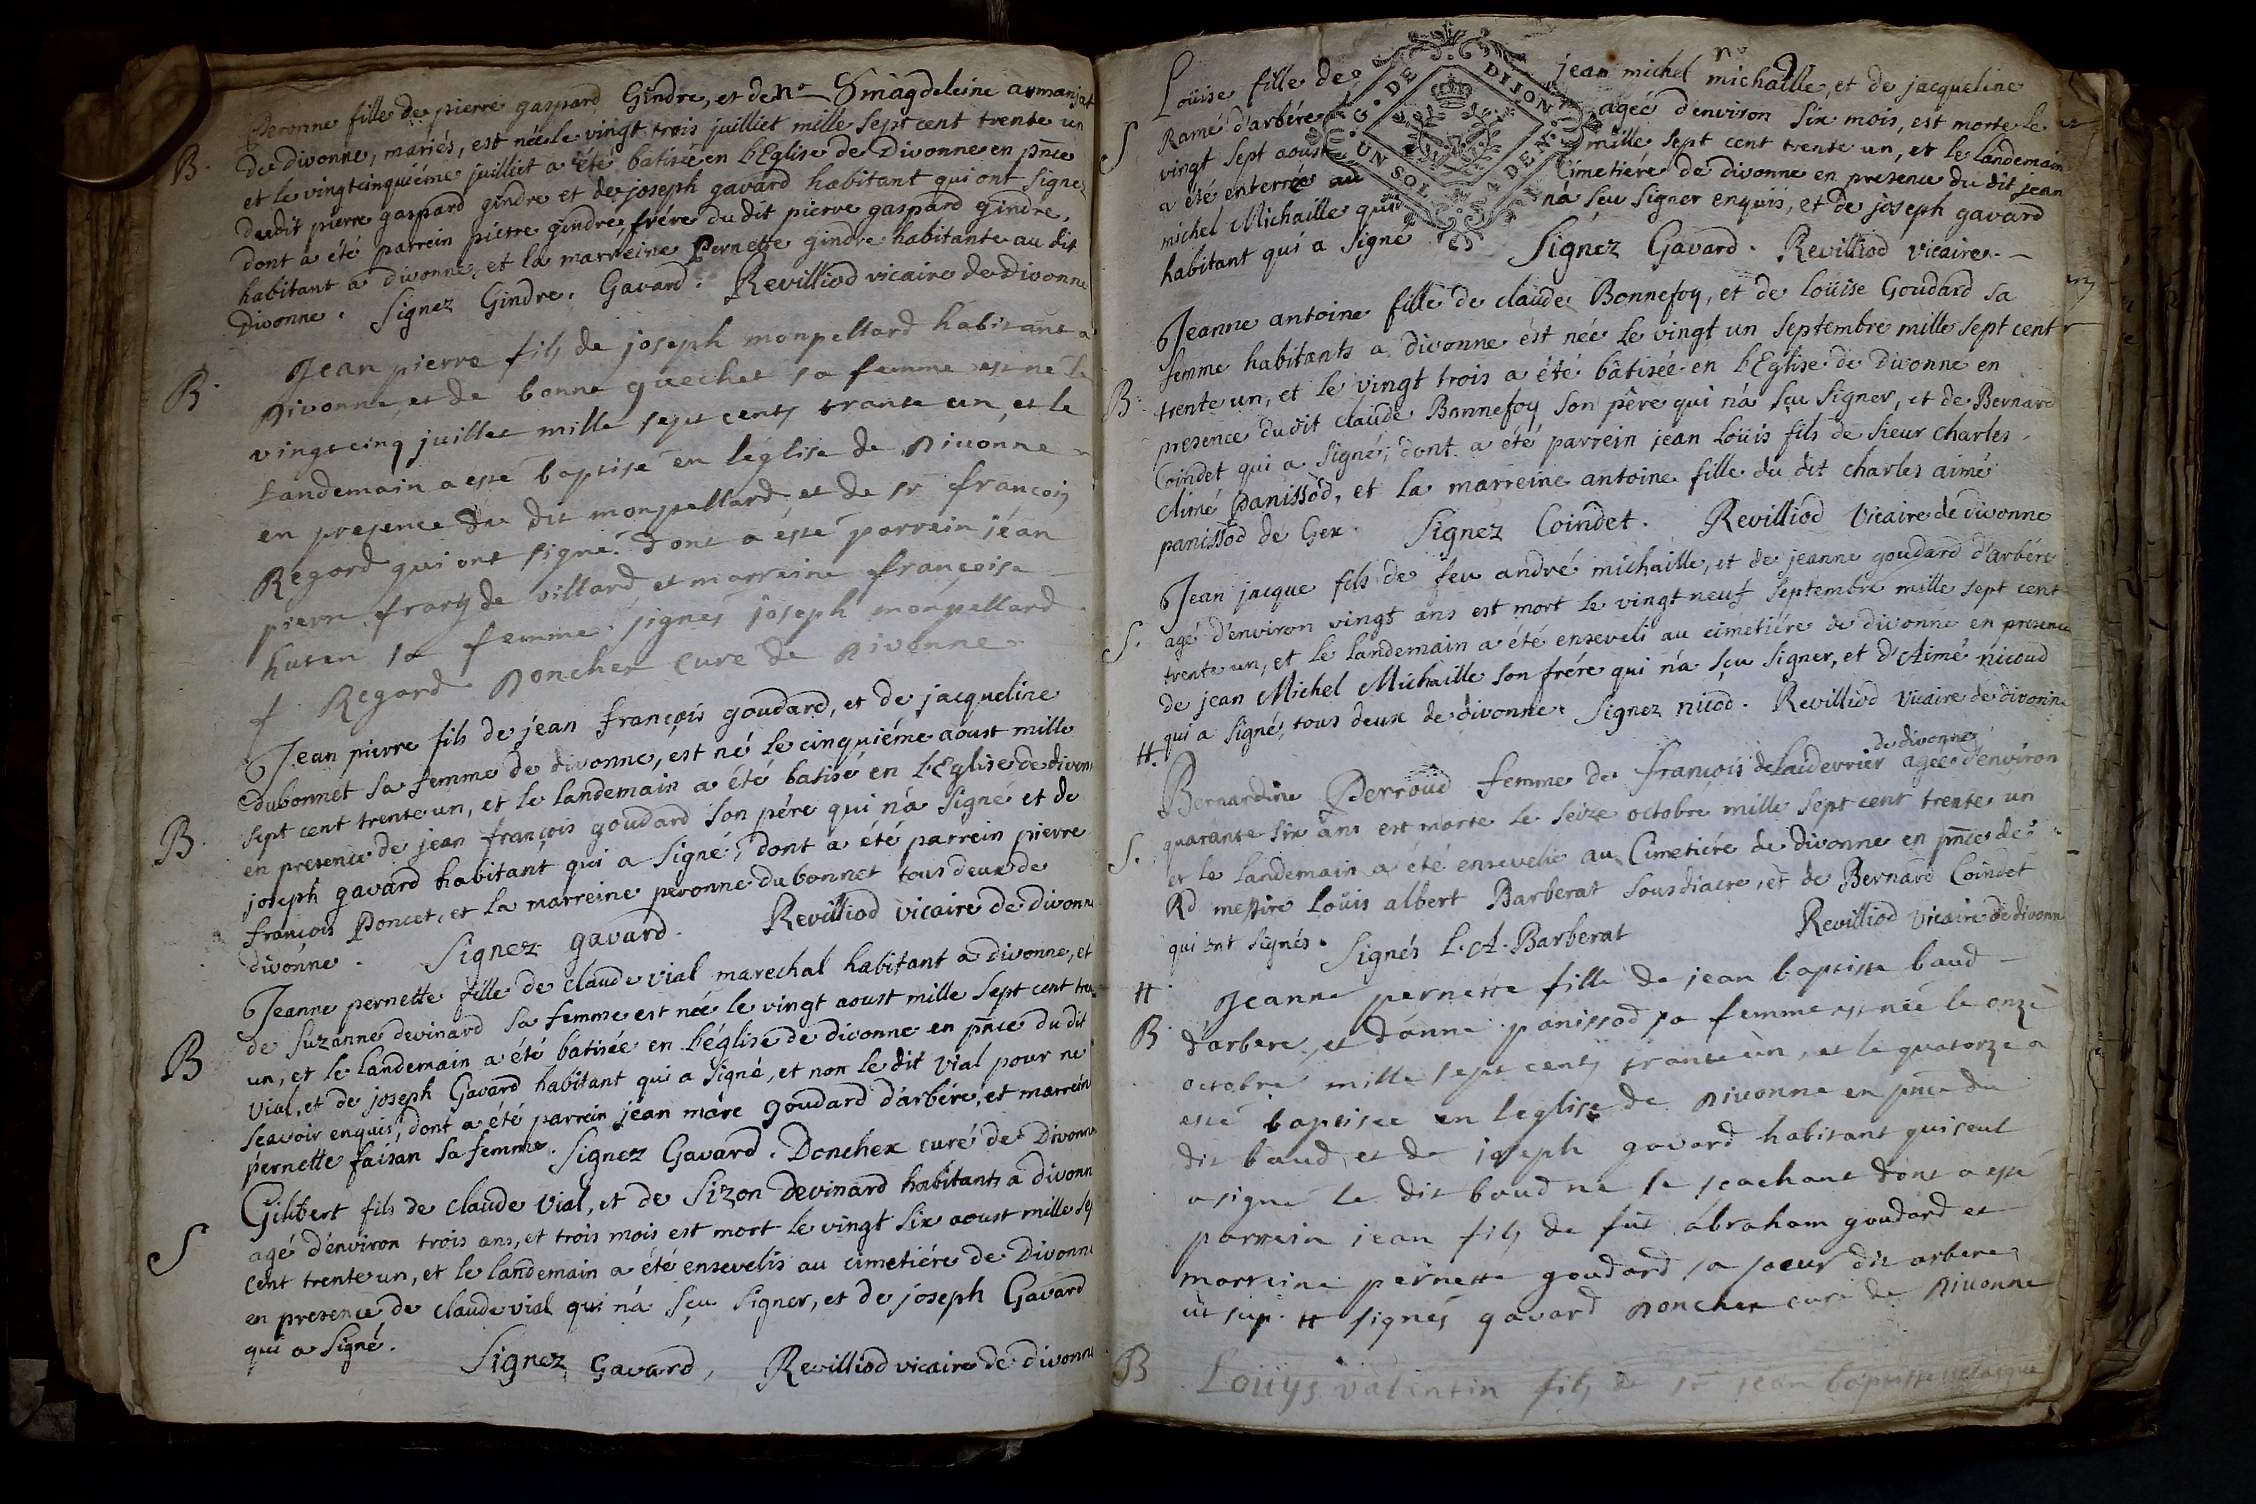 Peronne fille de pierre gaspard Gindre, et de magdeleine armanjat
B. de divonne, mariés, est née le vingt trois juilliet mille sept cent trente un
et le vingtcinquiéme juilliet a été batisée en l'Eglise de Divonne en pnce
dudit pierre gaspard gindre et de joseph gavard habitant qui ont signez
dont a été parrein pierre gindre, frére du dit pierre gaspard gindre,
habitant a divonne, et la marreine Pernette gindre habitante au dit
Divonne. Signez Gindre. Gavard. Revilliod vicaire de Divonne
B. Jean pierre fils de joseph monpellard habitant a
Divonne, et de bonne quechet sa femme est né le
vingtcinq juillet mille sept cents trante un, et le
Landemain a esté baptisé en l'église de Divonne
en presence du dit monpellard et de sr françois
Regard qui ont signé. dont a esté parrein jean
pierre frary de villard et marreine françoise
huten sa femme. signés joseph monpellard
f Regard Doncher curé de Divonne
Jean pierre fils de jean françois goudard, et de jacqueline
dubonnet sa femme de divonne, est né le cinquiéme aoust mille
B. sept cent trente un, et le landemain a été batisé en l'Eglise de divonne
en presence de jean françois goudard son pére qui n'a signé et de
joseph gavard habitant qui a signé, dont a été parrein pierre
françois Poncet, et la marreine peronne dubonnet tous deux de
divonne. Signez gavard. Revilliod vicaire de divonne
Jeanne pernette fille de claude vial marechal habitant a divonne, et
de Suzanne devinard sa femme est née le vingt aoust mille sept cent trente
B un, et le landemain a été batisée en l'église de divonne en pnce du dit
Vial, et de joseph Gavard habitant qui a signé, et non le dit vial pour ne
scavoir enquis, dont a été parrein jean marc goudard d'arbére, et marreine
pernette faisan sa femme. Signez Gavard. Doncher curé de Divonne
Gilibert fils de claude vial, et de Sizon Devinard habitants a divonne
S agé d'environ trois ans, et trois mois est mort le vingt six aoust mille sept
cent trente un, et le landemain a été ensevelis au cimetiére de Divonne
en presence de claude vial qui n'a sçu signer, et de joseph Gavard
qui a signé. Signez Gavard, Revilliod vicaire de divonne
G. DE DIJON
UN SOL 4 DEN.
Loüise fille de jean michel michaille, et de jacqueline
S Ramé d'arbére agée d'environ six mois, est morte le
vingt sept aoust mille sept cent trente un, et le landemain
a été enterrée au Cimetiére de divonne en presence du dit jean
michel Michaille qui n'a sçu signer enquis, et de joseph gavard
habitant qui a signé Signez Gavard. Revilliod vicaire.
Jeanne antoine fille de claude Bonnefoy, et de Loüise Goudard sa
femme habitants a divonne est née le vingt un septembre mille sept cent
B. trente un, et le vingt trois a été bâtisée en l'Eglise de Divonne en
presence dudit claude Bonnefoy son pére qui n'a sçu signer, et de Bernard
Coindet qui a signé, dont a été parrein jean Loüis fils de sieur charles
Aimé Panissod, et la marreine antoine fille du dit charles aimé
panissod de Gex. Signez Coindet. Revilliod Vicaire de divonne
Jean jacque fils de feu andré michaille, et de jeanne goudard d'arbére
S. agé d'environ vingt ans est mort le vingt neuf septembre mille sept cent
trente un, et le landemain a été enseveli au cimetiére de divonne en presence
de jean Michel Michaille son frére qui n'a sçu signer, et d'Aimé nicoud
qui a signé, tous deux de divonne. Signez nicod. Revilliod Vicaire de divonne
H. de divonne
Bernardine Perroud femme de françois delaidevrier agée d'environ
quarante six ans est morte le seize octobre mille sept cent trente un
S. et le landemain a été ensevelie au Cimetiére de divonne en pnce de
Rd messire Loüis albert Barberat sousdiacre, et de Bernard Coindet
qui ont signés. Signés L. A. Barberat Revilliod vicaire de divonne
H. Jeanne pernette fille de jean baptiste baud
B d'arbere, et d'anne panissod sa femme est née le onze
octobre mille sept cents trante un, et le quatorze a
esté baptisee en leglise de Divonne en pnce du
dit baud, et de joseph gavard habitant qui seul
a signé le dit baud ne le scachant dont a esté
parrein jean fils de fut abraham goudard et
marreine pernette goudard sa soeur dit arbere
ut sup. H signés gavard Doncher curé de Divonne
B Loüys valentin fils de sr jean baptiste